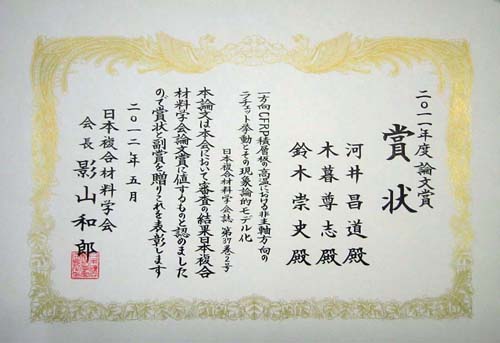 二〇一一年度論文賞
賞状
河井昌道殿
木暮尊志殿
鈴木崇史殿
一方向CFRP積層板の高温における非主軸方向の
ラチェット挙動とその現象論的モデル化
日本複合材料学会誌 第37巻2号
本論文は本会において審査の結果日本複合
材料学会論文賞に値するものと認めました
ので賞状と副賞を贈りこれを表彰します
二〇一二年五月
日本複合材料学会
会長 影山和郎